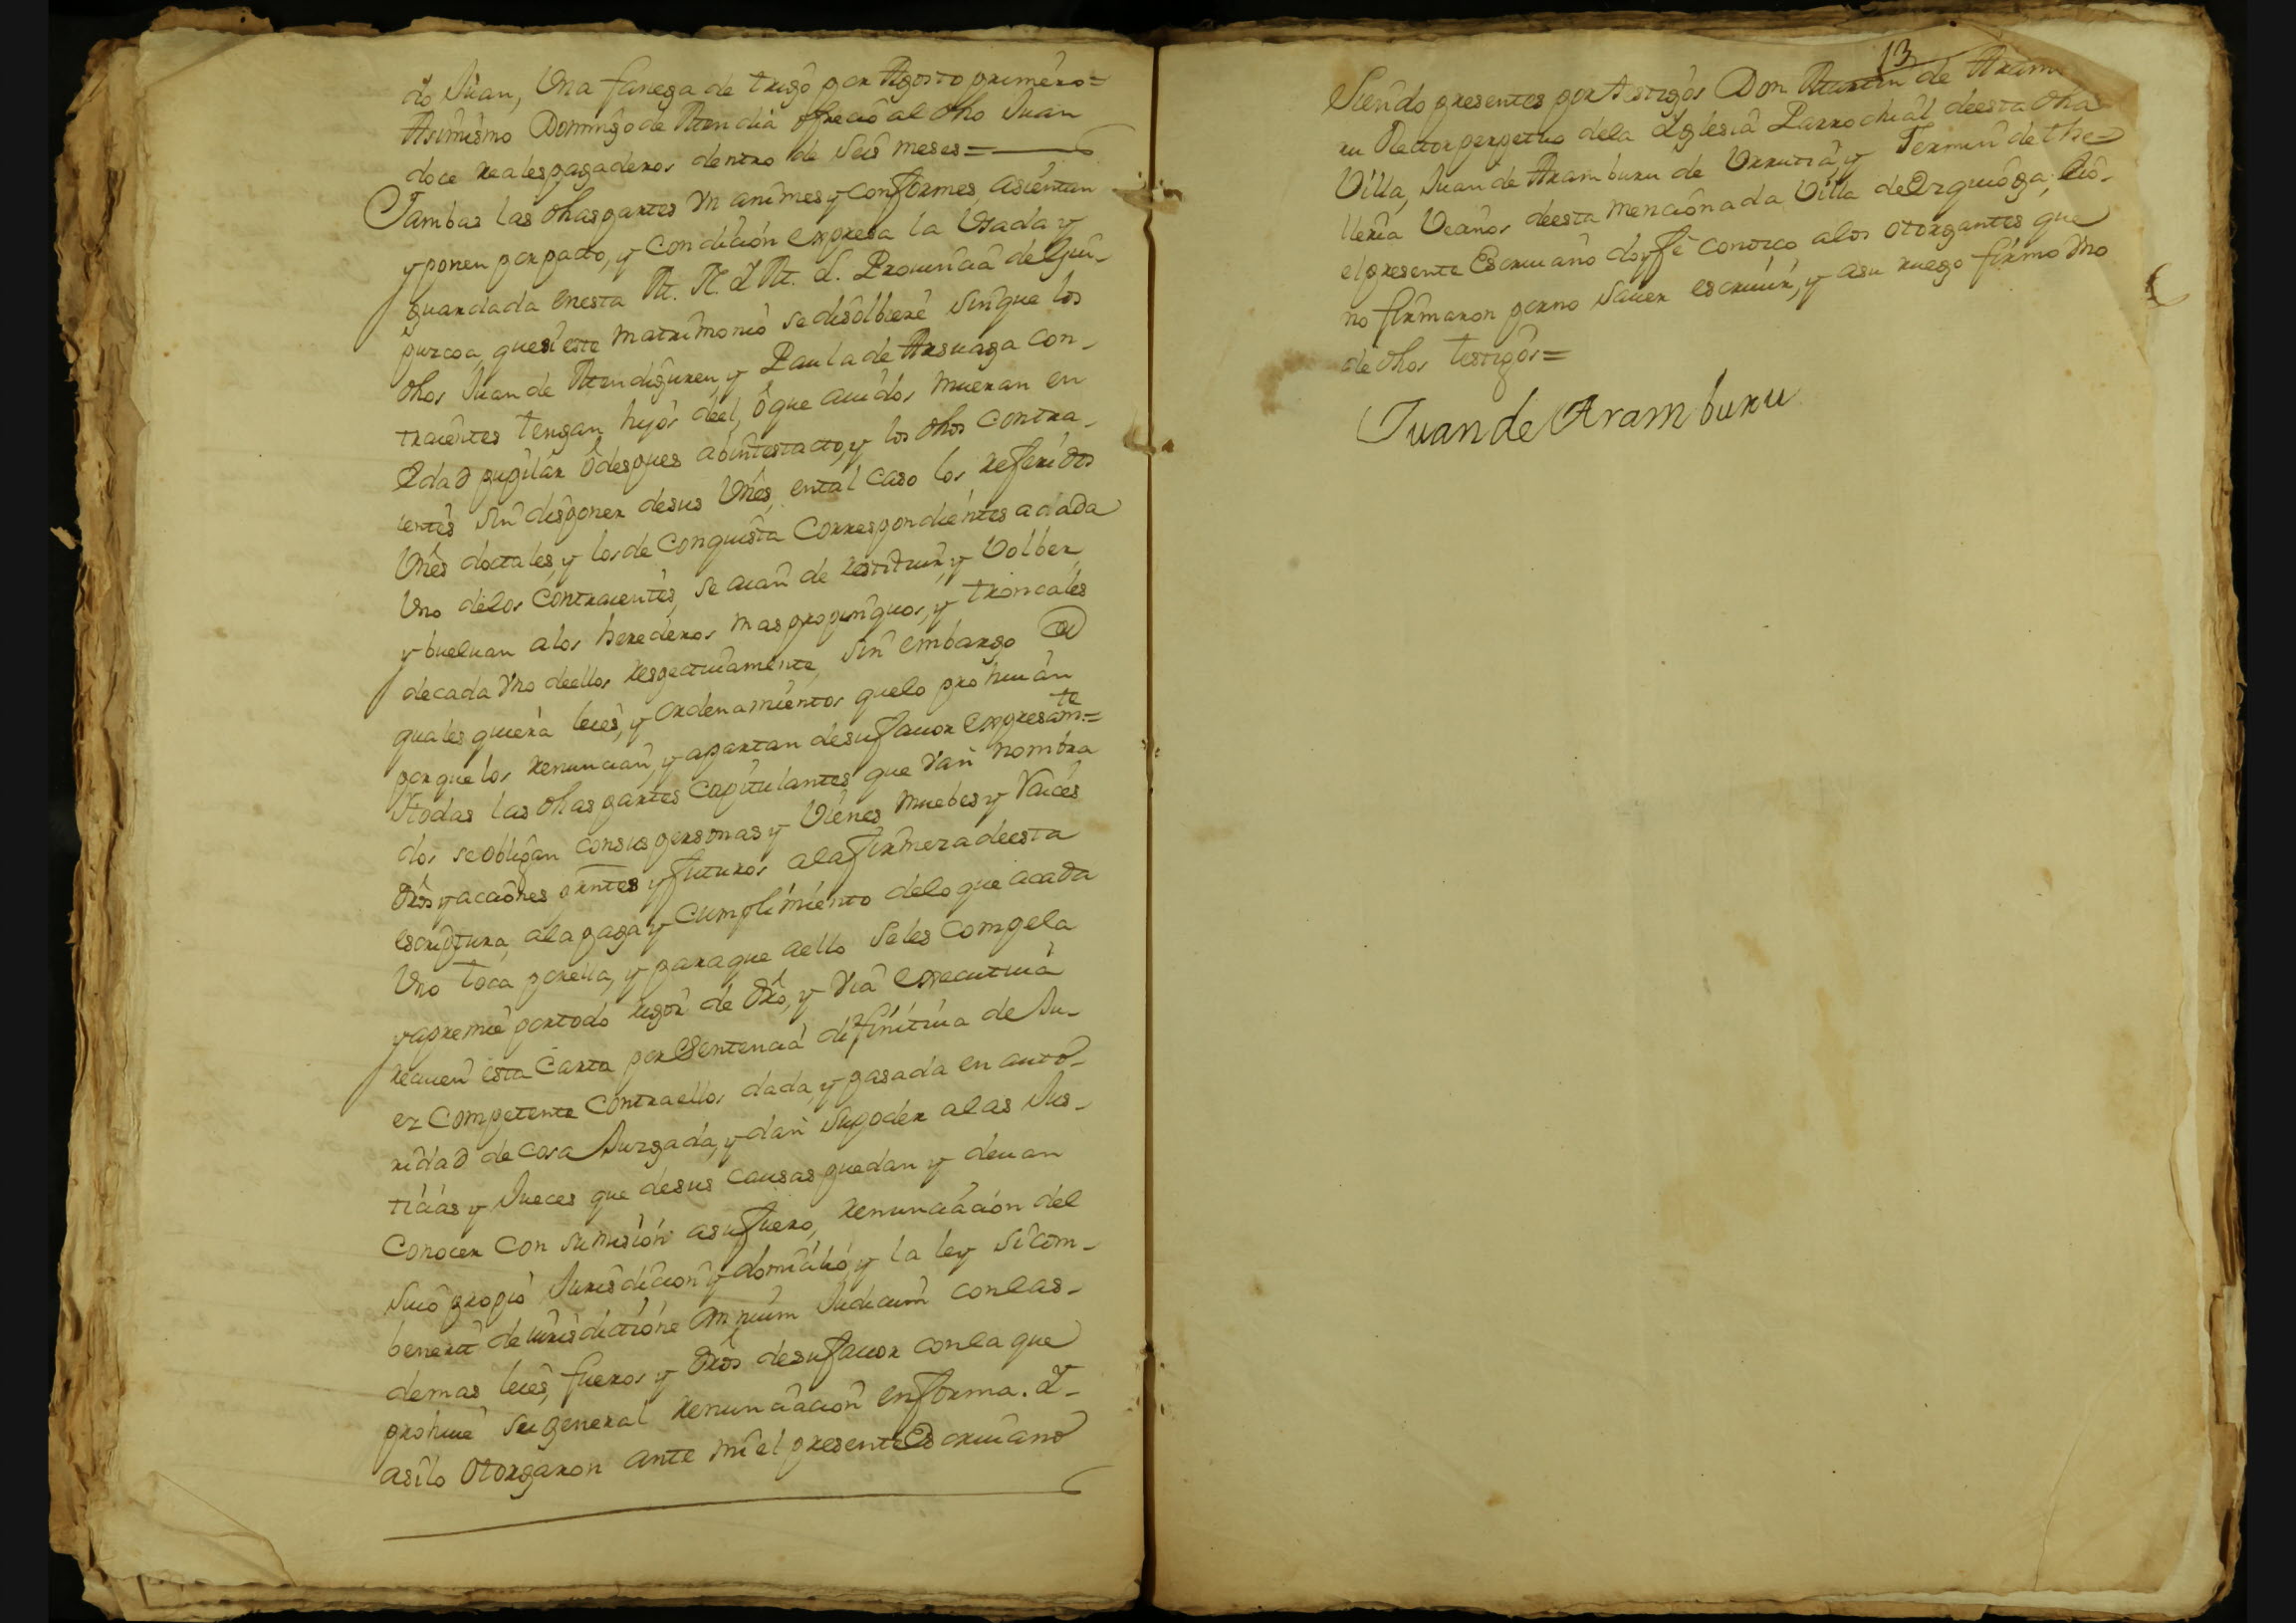 do Juan, Una fanega de trigo por Agosto primero=
Asimismo Domingo de Mendia ofrecio al dho Juan
doce reales pagaderos dentro de seis meses=
Y ambas las dhas partes Vnanimes y conformes, asientan
y ponen por pacto, y condicion expresa la Usada y
guardada en esta M. N. Y M. L. Provincia de Gui-
puzcoa, que si este matrimonio se disolbiere sin que los
dhos Juan de Mendiguren, y Paula de Arsuaga con-
traientes tengan hijos deel, ò que auidos mueran en
Edad pupilar ò despues abintestacto, y los dhos contra-
ientes sin disponer de sus Vnes, en tal caso los referidos
Vnes doctales, y los de conquista Correspondientes a cada
Uno de los contraientes, se aian de restituir, y Volber,
y buelvan a los herederos mas propinquos, y troncales
de cada Vno de ellos respectiuamente, sin embargo de
quales quiera leies, y ordenamientos que lo prohiuan
por que los renuncian, y apartan de su fauor expresamte=
Y todas las dhas partes Capitulantes que Van nombra
dos se obligan con sus personas y Vienes muebes y Raices
dros y acciones prntes y futuros a la firmeza de esta
escriptura, a la paga y cumplimiento de lo que a cada
Uno toca por ella, y para que a ello se les compela
y apremie por todo rigor de dro, y Via executiua
reciuen esta Carta por Sentencia difinitiua de Ju-
ez Competente Contra ellos dada, y pasada en auto-
ridad de cosa Juzgada, y dan su poder a las Jus-
ticias y Jueces que de sus causas puedan y deuan
Conocer con sumision a su fuero, renunciacion del
suio propio Jurisdicion y domicilio, y la ley sicom-
benerit de iurisdictione omnium Judicum con las-
demas leies, fueros y dros de su fauor con la que
prohiue su general renunciacion en forma. Y-
asi lo otorgaron ante mi el presente Escriuano
13
Siendo presentes por testigos Don Martin de Aram
ru Rector perpetuo de la Yglesia Parrochial de esta dha
Villa, Juan de Aramburu de Urrutia, y Fermin de the=
lleria Vecinos de esta mencionada Villa de Ezquioga; Yo-
el presente Escriuano doy fè conozco a los otorgantes que
no firmaron por no sauer escriuir, y a su ruego firmo Vno
de dhos testigos=
Juan de Aramburu